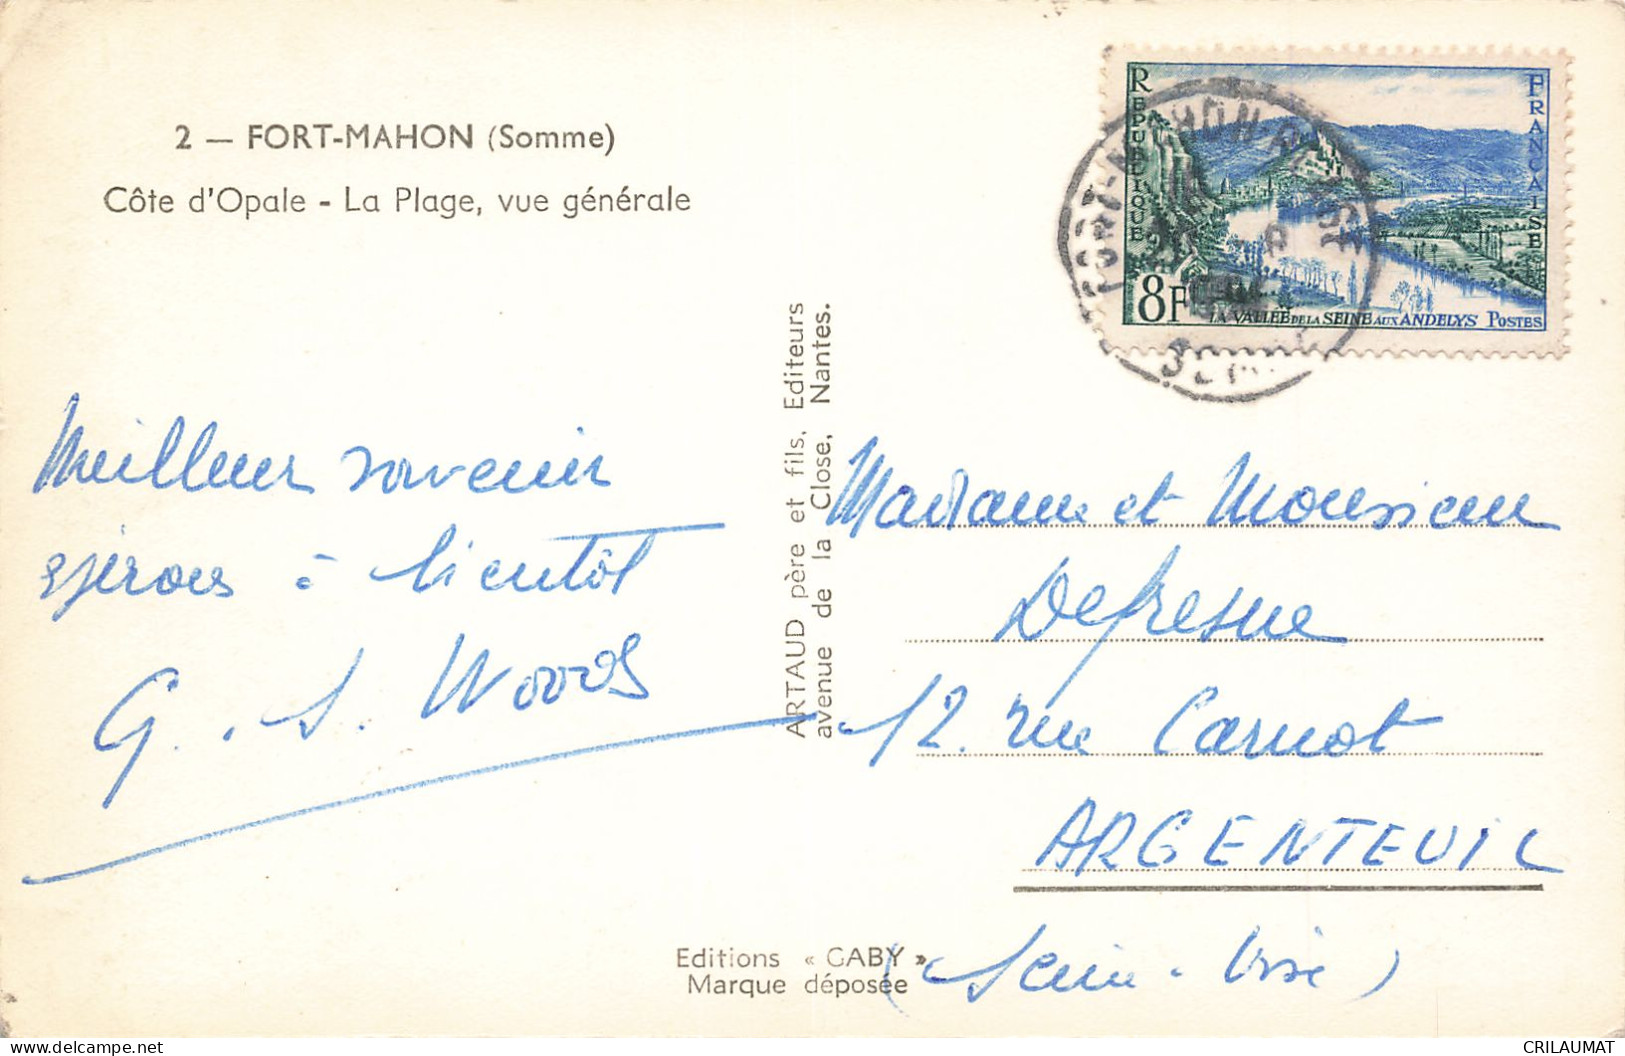 2 — FORT-MAHON (Somme)
Côte d'Opale - La Plage, vue générale
Meilleur souvenir
espérons à bientôt
G. S. Woods
ARTAUD père et fils, Editeurs
avenue de la Close, Nantes.
Editions « GABY »
Marque déposée
REPUBLIQUE
FRANÇAISE
8F
LA VALLÉE DE LA SEINE AUX ANDELYS POSTES
FORT-MAHON-PLAGE
SOMME
Madame et Monsieur
Defresne
12. rue Carnot
ARGENTEUIL
(Seine-Oise)
CRILAUMAT